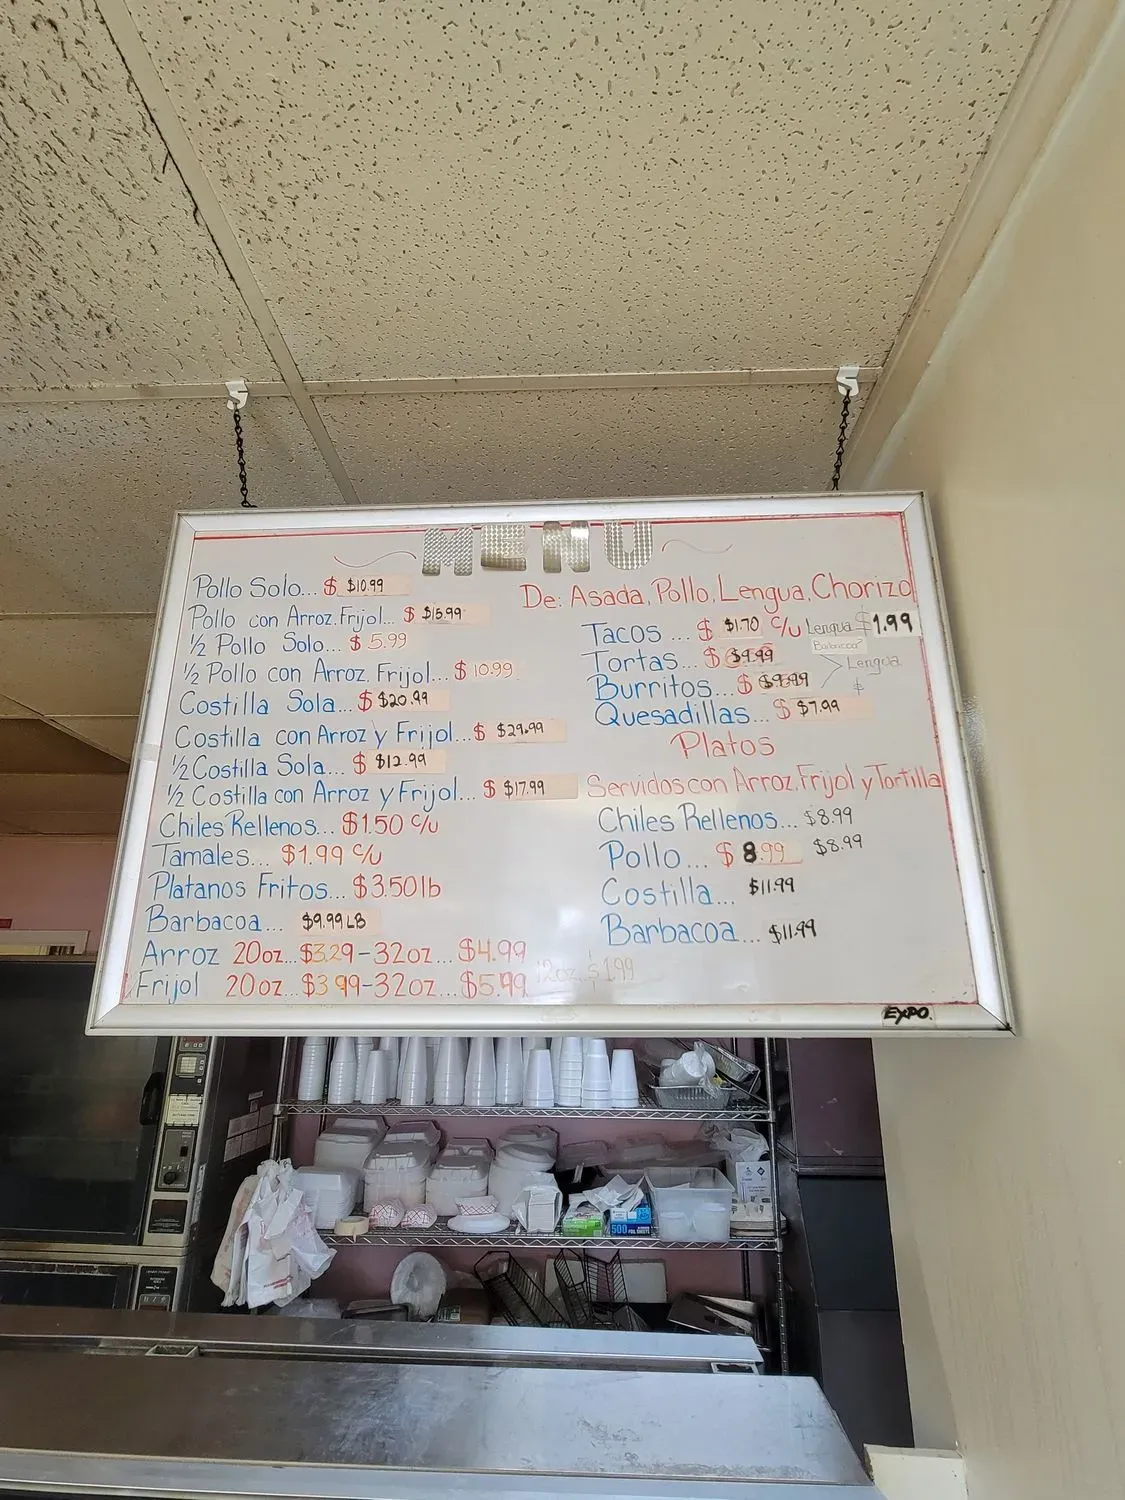 MENU
Pollo Solo... $ $10.99
Pollo con Arroz, Frijol... $ $15.99
1/2 Pollo Solo... $ 5.99
1/2 Pollo con Arroz, Frijol... $ 10.99
Costilla Sola... $ $20.99
Costilla con Arroz y Frijol... $ $29.99
1/2 Costilla Sola... $ $12.99
1/2 Costilla con Arroz y Frijol... $ $17.99
Chiles Rellenos... $1.50 c/u
Tamales... $1.99 c/u
Platanos Fritos... $3.50 lb
Barbacoa... $9.99 LB
Arroz 20oz... $3.29-32oz... $4.99
Frijol 20oz... $3.99-32oz... $5.99 12oz $1.99
De: Asada, Pollo, Lengua, Chorizo
Tacos ... $ $1.70 c/u Lengua $1.99
Barbacoa
Tortas... $
Burritos... $
Lengua
$
Quesadillas... $ $7.99
Platos
Servidos con Arroz, Frijol y Tortilla
Chiles Rellenos... $8.99
Pollo... $8.99 $8.99
Costilla... $11.99
Barbacoa... $11.99
EXPO.
500